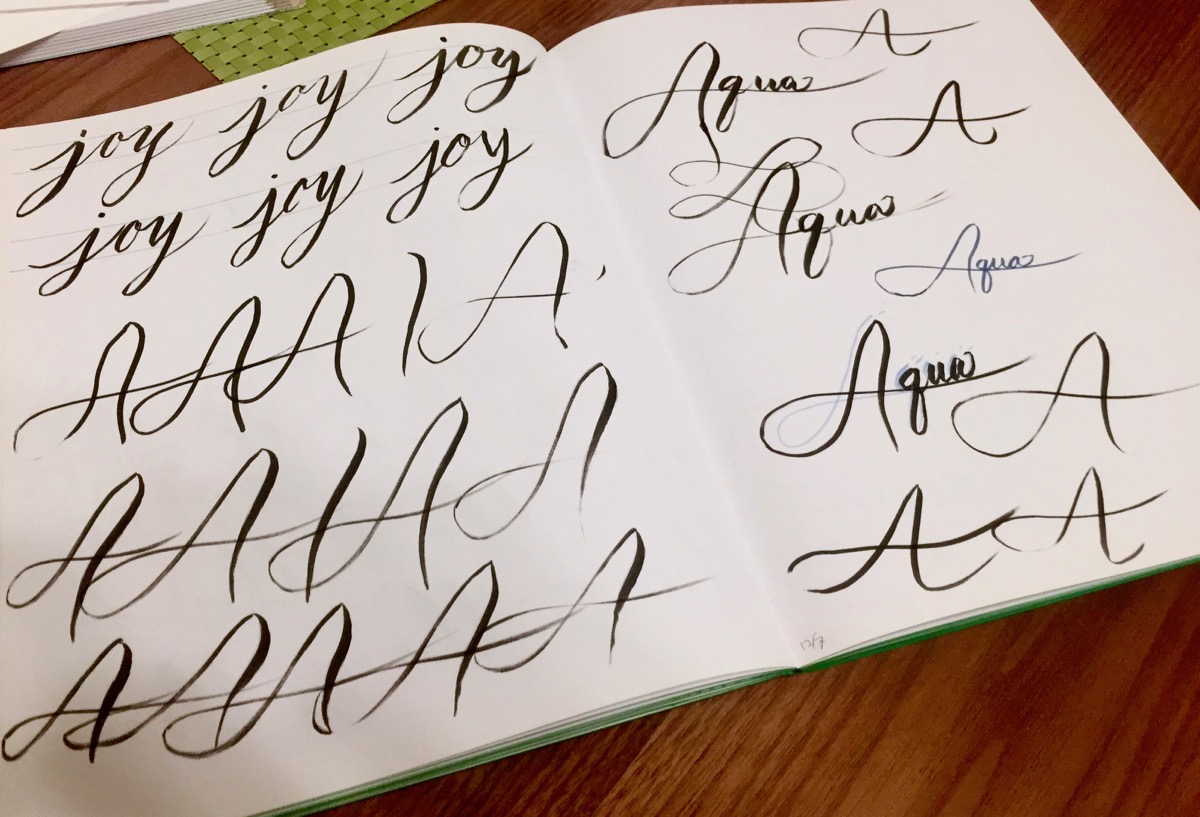 joy joy joy
joy joy joy
A A A A
A A A A
A A A A A
A
Aqua
A
Aqua
Aqua
Aqua A
A A
12/7